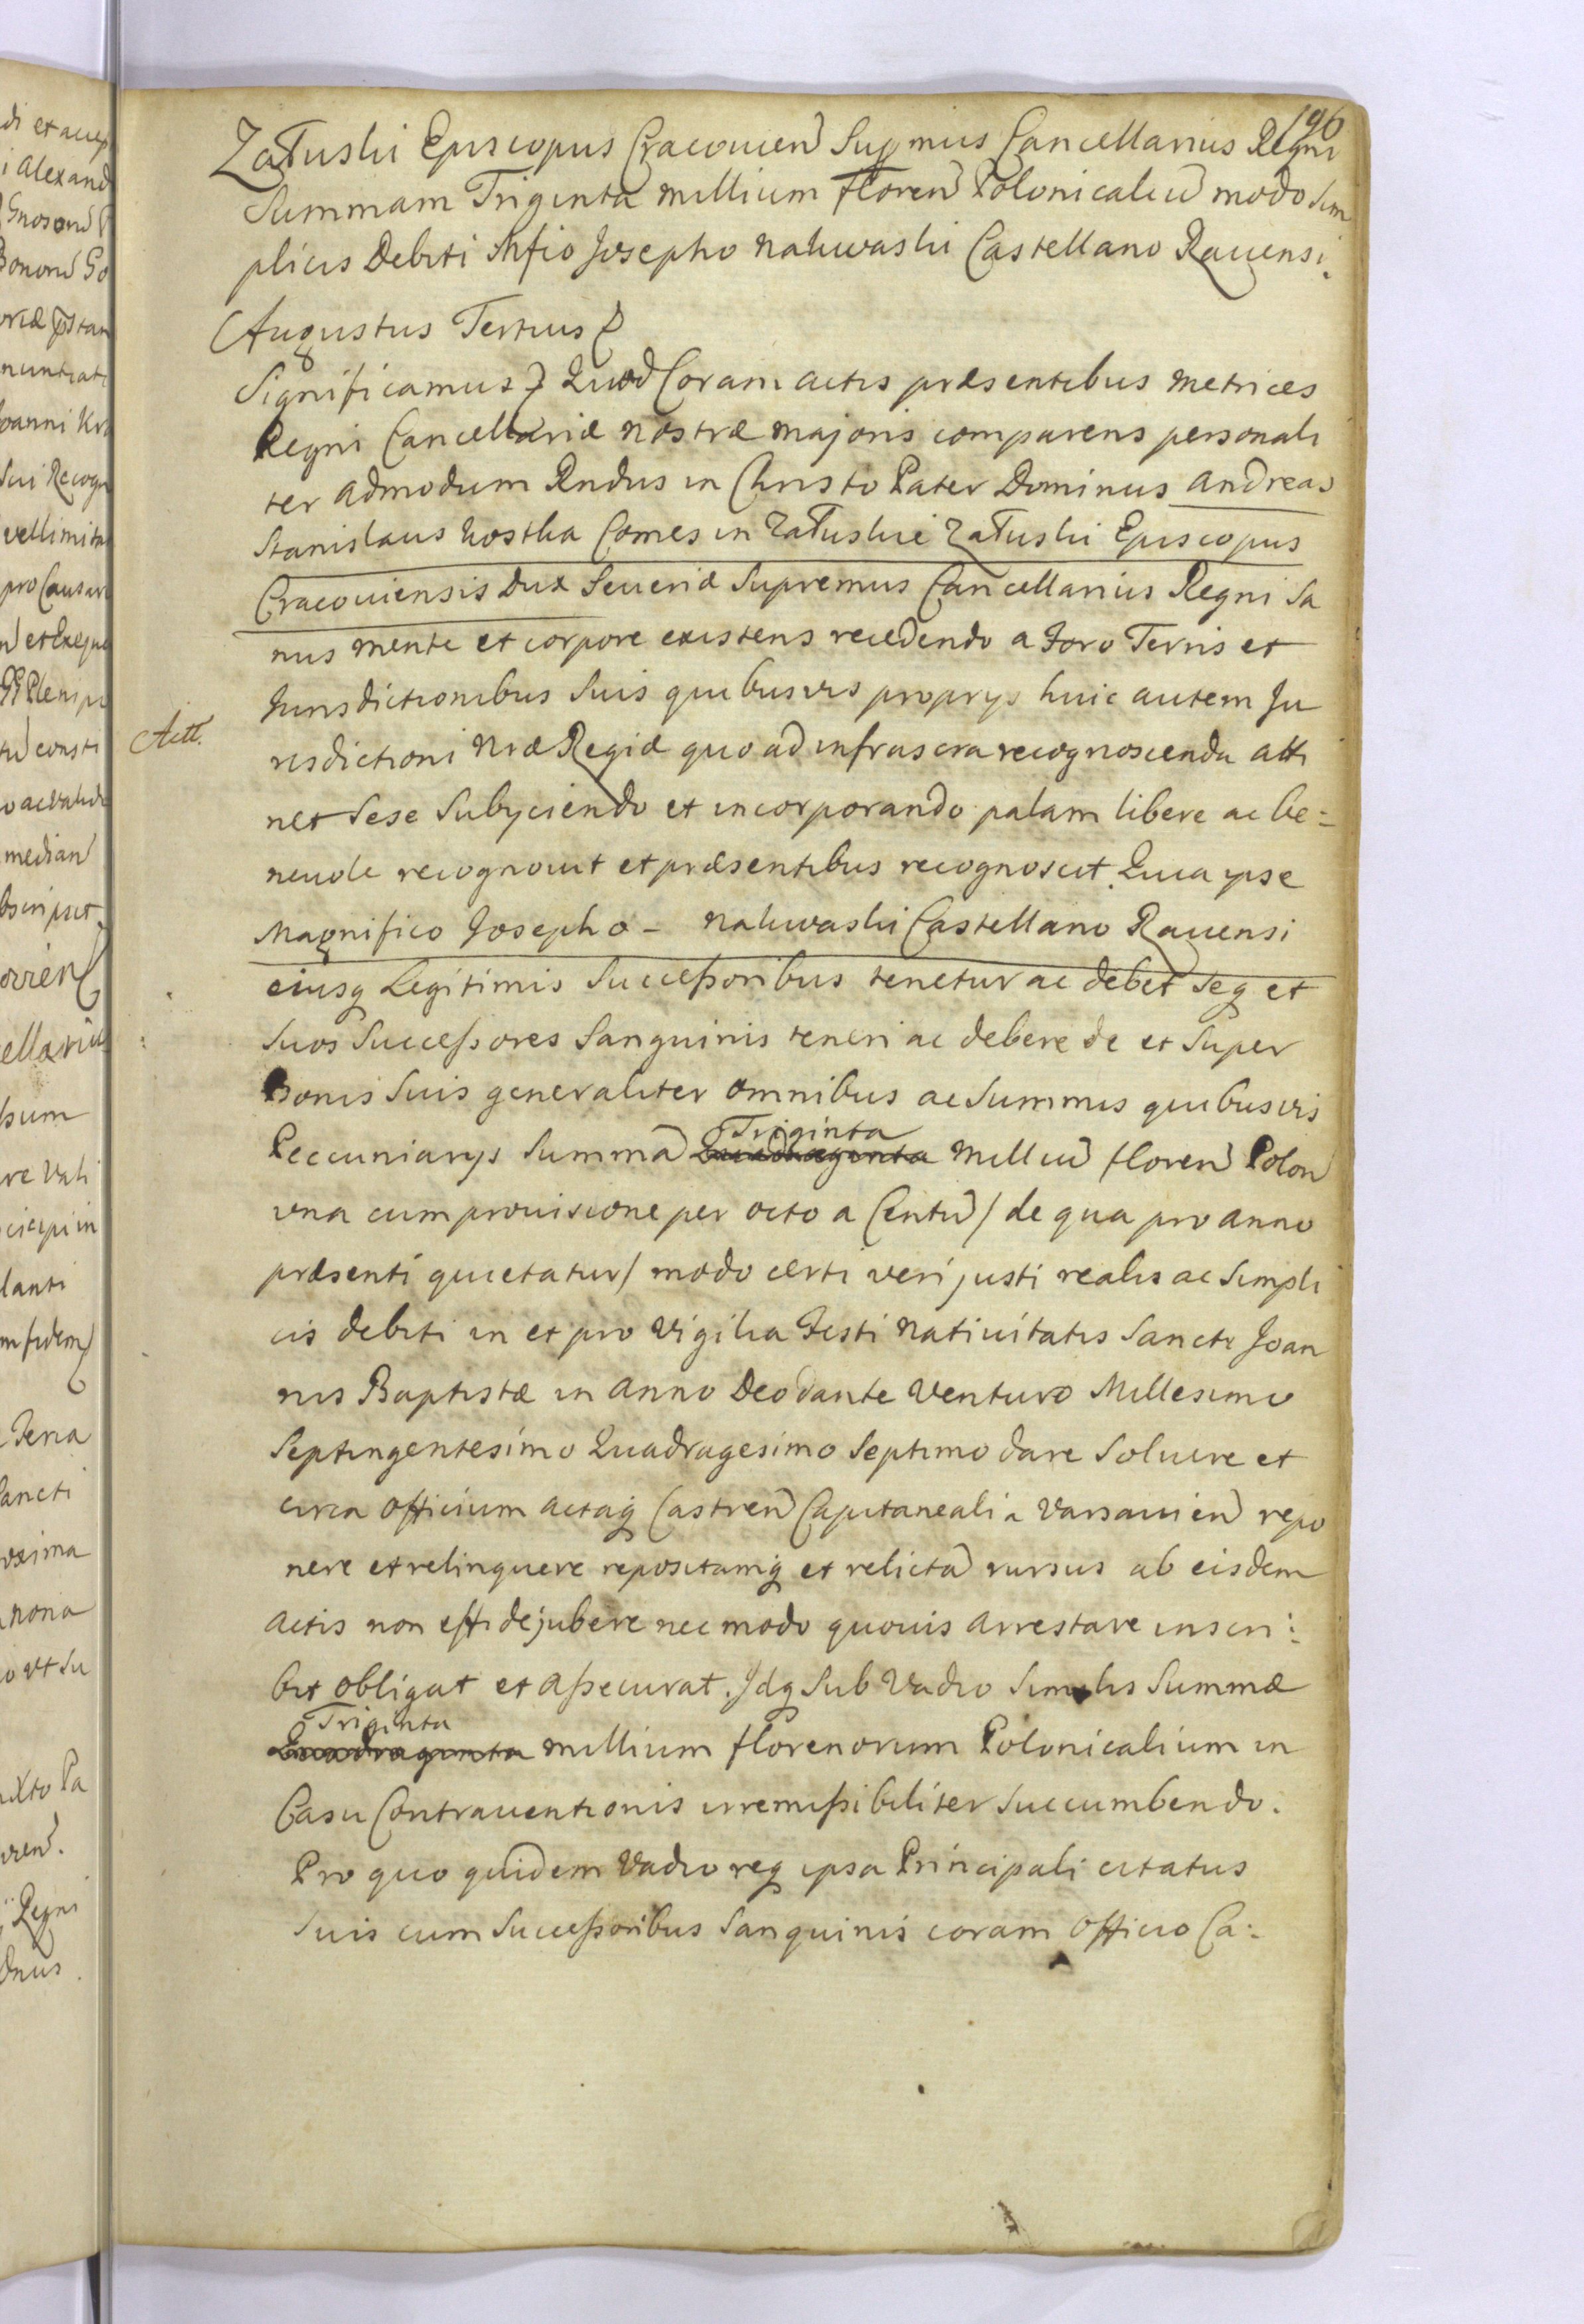 196
Załuski Episcopus Cracouien Supmus Cancellarius Regni
Summam Triginta millium floren Polonicaliu modo Sim
plicis Debiti Mfio Josepho Nakwaski Castellano Rauensi.
Augustus Tertius
Significamus Quod Coram actis præsentibus Metrices
Regni Cancellariæ Nostræ majoris comparens personali
ter Admodum Rndus in Christo Pater Dominus Andreas
Stanislaus Kostka Comes in Załuskie Załuski Episcopus
Cracouiensis Dux Seueriæ Supremus Cancellarius Regni Sa
nus mente et corpore existens recedendo a Foro Terris et
Jurisdictionibus Suis quibusvis proprys huic autem Ju
Actt.
risdictioni Nræ Regiæ quo ad infrascra recognoscenda atti
net Sese Subyciendo et incorporando palam libere ac be=
neuole recognouit et præsentibus recognoscit. Quia ipse
Magnifico Josepho - Nakwaski Castellano Rauensi
eiusq Legitimis Successoribus tenetur ac debet Seq et
Suos Successores Sanguinis teneri ac debere de et Super
Bonis Suis generaliter omnibus ac Summis quibusvis
Triginta
Peccuniarys Summa Quadraginta Milliu floren Polon
vna cum prouisione per octo a Centu / de qua pro anno
præsenti quietatur / modo certi veri justi realis ac Simpli
cis debiti in et pro Vigilia Festi Natiuitatis Sancti Joan
nis Baptistæ in Anno Deo dante Venturo Millesimo
Septingentesimo Quadragesimo Septimo dare Soluere et
circa officium actaq Castren Capitanealia Varsauien repo
nere et relinquere repositamq et relicta rursus ab eisdem
actis non effidejubere nec modo quouis arrestare inscri:
bit obligat et assecurat. Idq Sub Vadio Similis Summæ
Triginta
Quadraginta millium florenorum Polonicalium in
Casu Contrauentionis irremissibiliter Succumbendo.
Pro quo quidem Vadio req ipsa Principali citatus
Suis cum Successoribus Sanguinis coram Officio Ca: